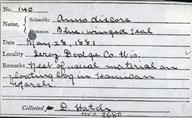 No. 140
Name, { Scientific, Anas discors
Common, Blue-winged Teal
Date, May 28, 1881
Locality, Leroy Dodge Co. Wis.
Remarks, Nest of usual material on
floating bog in Horricon
Marsh.
Collected D. Hatch
MVZ 8680